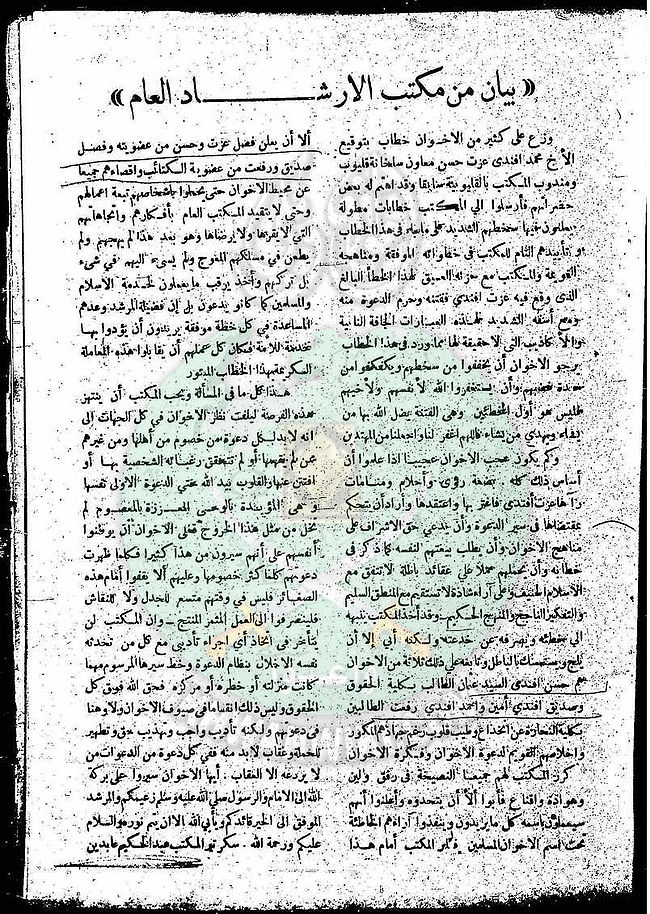 « بيان من مكتب الارشاد العام »
وزع على كثير من الاخوان خطاب بتوقيع
الأخ محمد افندى عزت حسن معاون سلخانة قليوب
ومندوب المكتب بالقليوبية سابقا وقد اهتم له بعض
حضراتهم فأرسلوا الى المكتب خطابات مطولة
يعلنون فيها سخطهم الشديد على ماجاء فى هذا الخطاب
وتأييدهم التام للمكتب فى خطواته الموفقة ومناهجه
القويمة والمكتب مع حزنه العميق لهذا الخطأ البالغ
الذى وقع فيه عزت افندى ففتنه وحرم الدعوة منه
ومع أسفه الشديد لهذه العبارات الجافة النابية
والأكاذيب التى لا حقيقة لها مما ورد فى هذا الخطاب
يرجو الاخوان أن يخففوا من سخطهم ويكفكفوا من
حدة غضبهم وأن يستغفروا الله لأنفسهم ولأخيهم
فليس هو أول المخطئين وهى الفتنة يضل الله بها من
يشاء ويهدى من يشاء فاللهم اغفر لنا واجعلنا من المهتدين
وكم يكون عجب الاخوان عجيبا اذا علموا أن
أساس ذلك كله بضعة رؤى وأحلام ومنامات
رآها عزت أفندى فاغتر بها واعتقدها وأراد أن يتحكم
بمقتضاها فى سير الدعوة وأن يدعى حق الاشراف على
مناهج الاخوان وأن يطلب بيعتهم لنفسه كما ذكر فى
خطابه وأن يحملهم حملا على عقائد باطلة لا تتفق مع
الاسلام الحنيف وعلى آراء شاذة لا تستقيم مع المنطق السليم
والتفكير الناجح والمنهج الحكيم وقد أخذ المكتب ينبهه
الى خطئه ويصرفه عن خدعته ولكنه أبى إلا أن
يلج ويستمسك بالباطل وتابعه على ذلك ثلاثة من الاخوان
هم حسن افندى السيد عثمان الطالب بكلية الحقوق
وصديق افندى أمين واحمد افندى رفعت الطالبين
بكلية التجارة عن انخداع وطيب قلوب رغم جهادهم المذكور
واخلاصهم القويم لدعوة الاخوان وفكرة الاخوان
كرر المكتب لهم جميعا النصيحة فى رفق ولين
وهوادة واقناع فأبوا الا أن يتحدوه وأعلنوا أنهم
سيعملون باسمه كل ما يريدون وينفذوا آراءهم الخاطئة
تحت اسم الاخوان المسلمين فلم ير المكتب أمام هذا
ألا أن يعلن فصل عزت وحسن من عضويته وفصل
صديق ورفعت من عضوية الكتائب واقصاءهم جميعا
عن محيط الاخوان حتى يتحملوا بأشخاصهم تبعة اعمالهم
وحتى لا يتقيد المكتب العام بأفكارهم واتجاهاتهم
التى لا يقرها ولا يرضاها وهو بعد هذا لم يهجهم ولم
يطعن فى مسلكهم المعوج ولم يسىء اليهم فى شىء
بل تركهم وأخذ يرقب ما يعملون لخدمة الأسلام
والمسلمين كما كانو يدعون بل إن فضيلة المرشد وعدهم
المساعدة فى كل خطة موفقة يريدون أن يؤدوا بها
خدمة للأمة فكان كل عملهم أن يقابلوا هذه المعاملة
الكريمة بهذا الخطاب المبتور
هذا كل ما فى المسألة ويحب المكتب أن ينتهز
هذه الفرصة ليلفت نظر الاخوان فى كل الجهات إلى
انه لابد لكل دعوة من خصوم من أهلها ومن غيرهم
ممن لم يفهمها أو لم تتحقق رغباته الشخصية بها أو
افتتن عنها والقلوب بيد الله حتى الدعوة الأولى نفسها
وهى المؤيدة بالوحى المعززة بالمعصوم لم
تخل من مثل هذا الخروج فعلى الاخوان أن يوطنوا
أنفسهم على أنهم سيرون من هذا كثيرا فكلما ظهرت
دعوتهم كلما كثر خصومها وعليهم ألا يقفوا أمام هذه
الصغائر فليس فى وقتهم متسع للجدل ولا للنقاش
فلينصرفوا الى العمل المثمر المنتج – وان المكتب لن
يتأخر فى اتخاذ أى اجراء تأديبى مع كل من تحدثه
نفسه الاخلال بنظام الدعوة وخط سيرها المرسوم مهما
كانت منزلته أو خطره أو مركزه فحق الله فوق كل
الحقوق وليس ذلك انتقاما فى صفوف الاخوان ولا وهنا
فى دعوتهم ولكنه تأديب واجب وتهذيب حق وتطهير
للحملة وعقاب لابد منه ففى كل دعوة من الدعوات من
لا يردعه الا العقاب . أيها الاخوان سيروا على بركة
الله الى الامام والرسول صلى الله عليه وسلم زعيمكم والمرشد
الموفق الى الخير قائدكم ويأبى الله الا ان يتم نوره والسلام
عليكم ورحمة الله . سكرتير المكتب عبد الحكيم عابدين